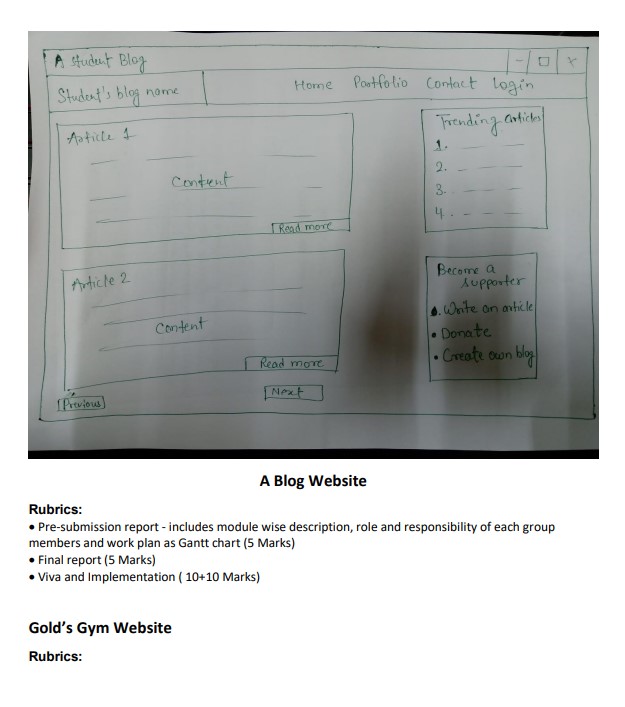 A Student Blog
- □ x
Student's blog name
Home Portfolio Contact Login
Article 1
Content
Read more
Trending articles
1.
2.
3.
4.
Article 2
Content
Read more
Become a
supporter
• Write an article
• Donate
• Create own blog
Previous
Next
A Blog Website
Rubrics:
• Pre-submission report - includes module wise description, role and responsibility of each group
members and work plan as Gantt chart (5 Marks)
• Final report (5 Marks)
• Viva and Implementation ( 10+10 Marks)
Gold’s Gym Website
Rubrics: